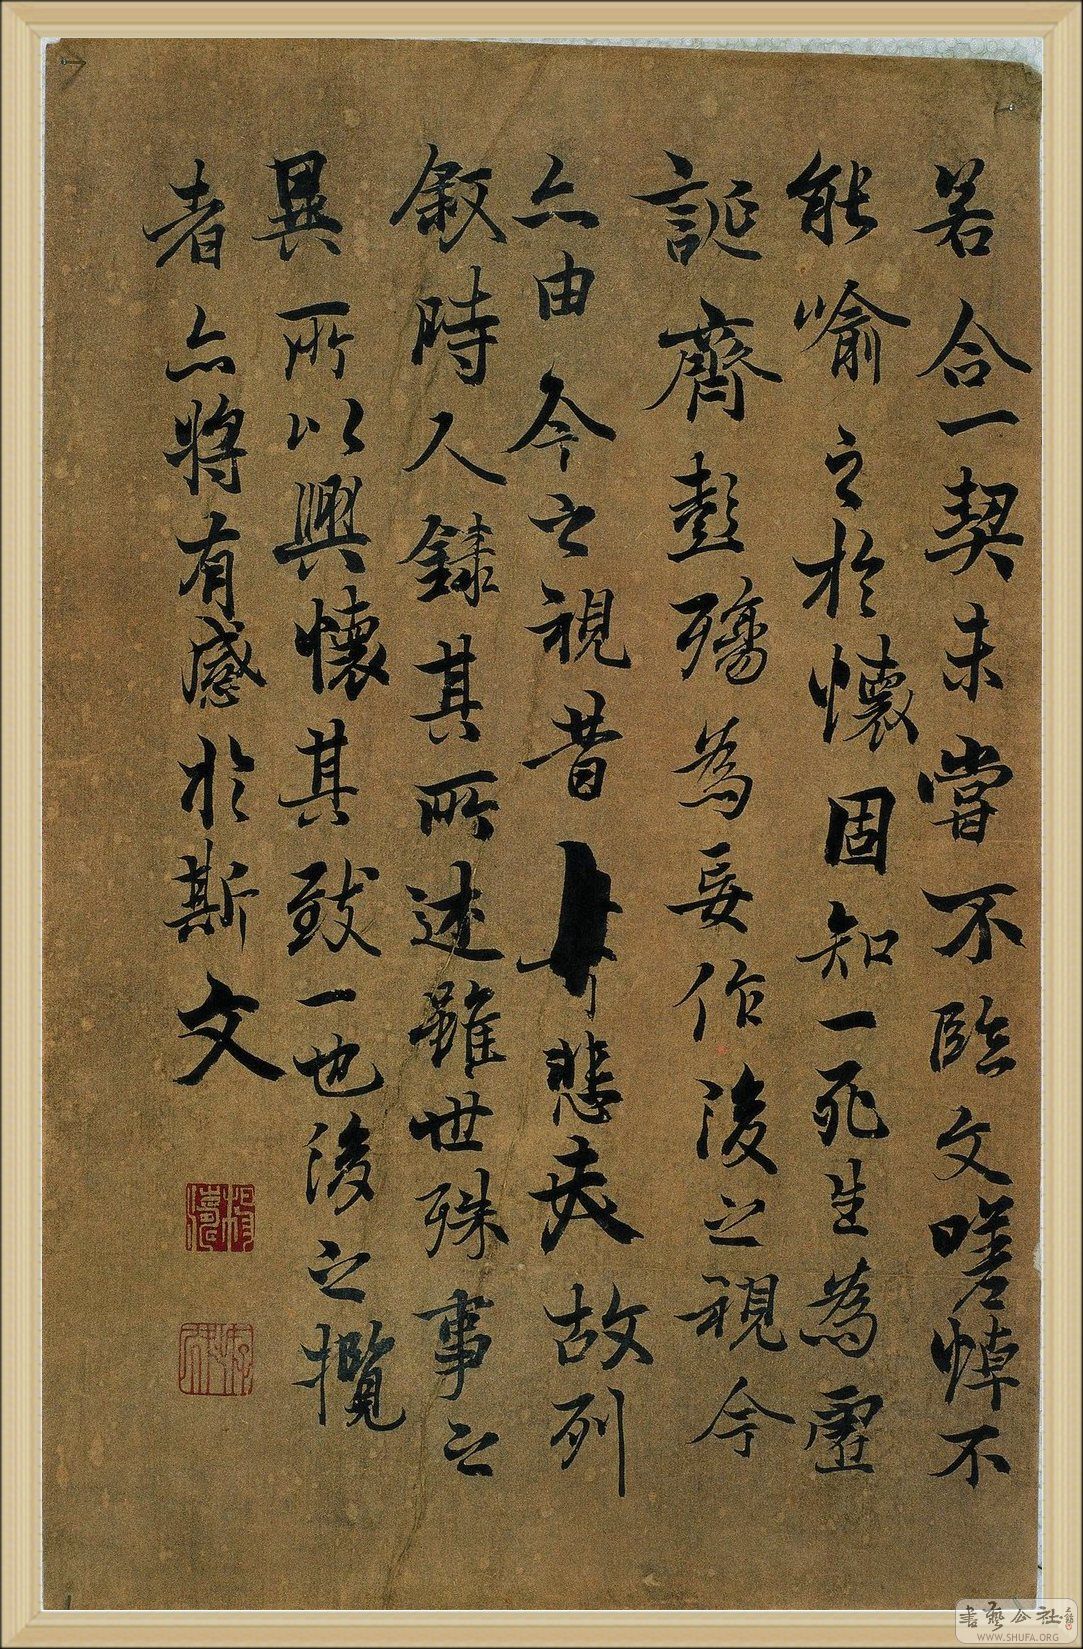 若合一契未嘗不臨文嗟悼不
能喻之於懷固知一死生為虛
誕齊彭殤為妄作後之視今
亦由今之視昔悲夫故列
敘時人錄其所述雖世殊事之
異所以興懷其致一也後之攬
者亦將有感於斯文
書藝公社
WWW.SHUFA.ORG